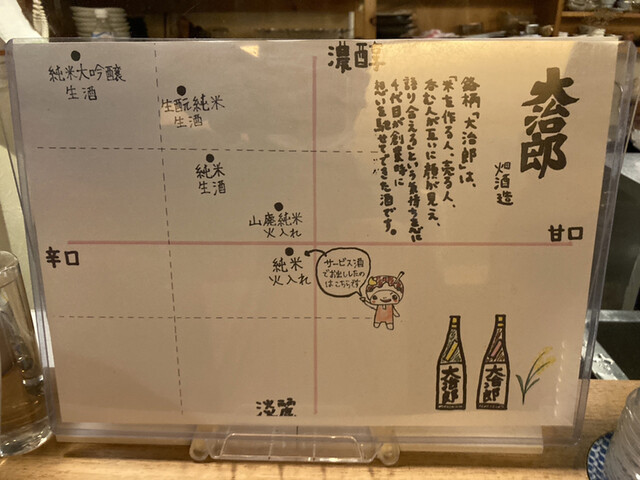 大治郎
畑酒造
銘柄「大治郎」は、
「米を作る人、売る人、
呑む人が互いに顔が見え、
語り合える」という気持ちを忘
千代目が創業時に
想いを馳せてできた酒です。
濃醇
純米大吟醸
生酒
生酛純米
生酒
純米
生酒
山廃純米
火入れ
純米
火入れ
サービス酒
でお出ししたの
はこちらです
辛口
甘口
淡麗
大治郎
大治郎